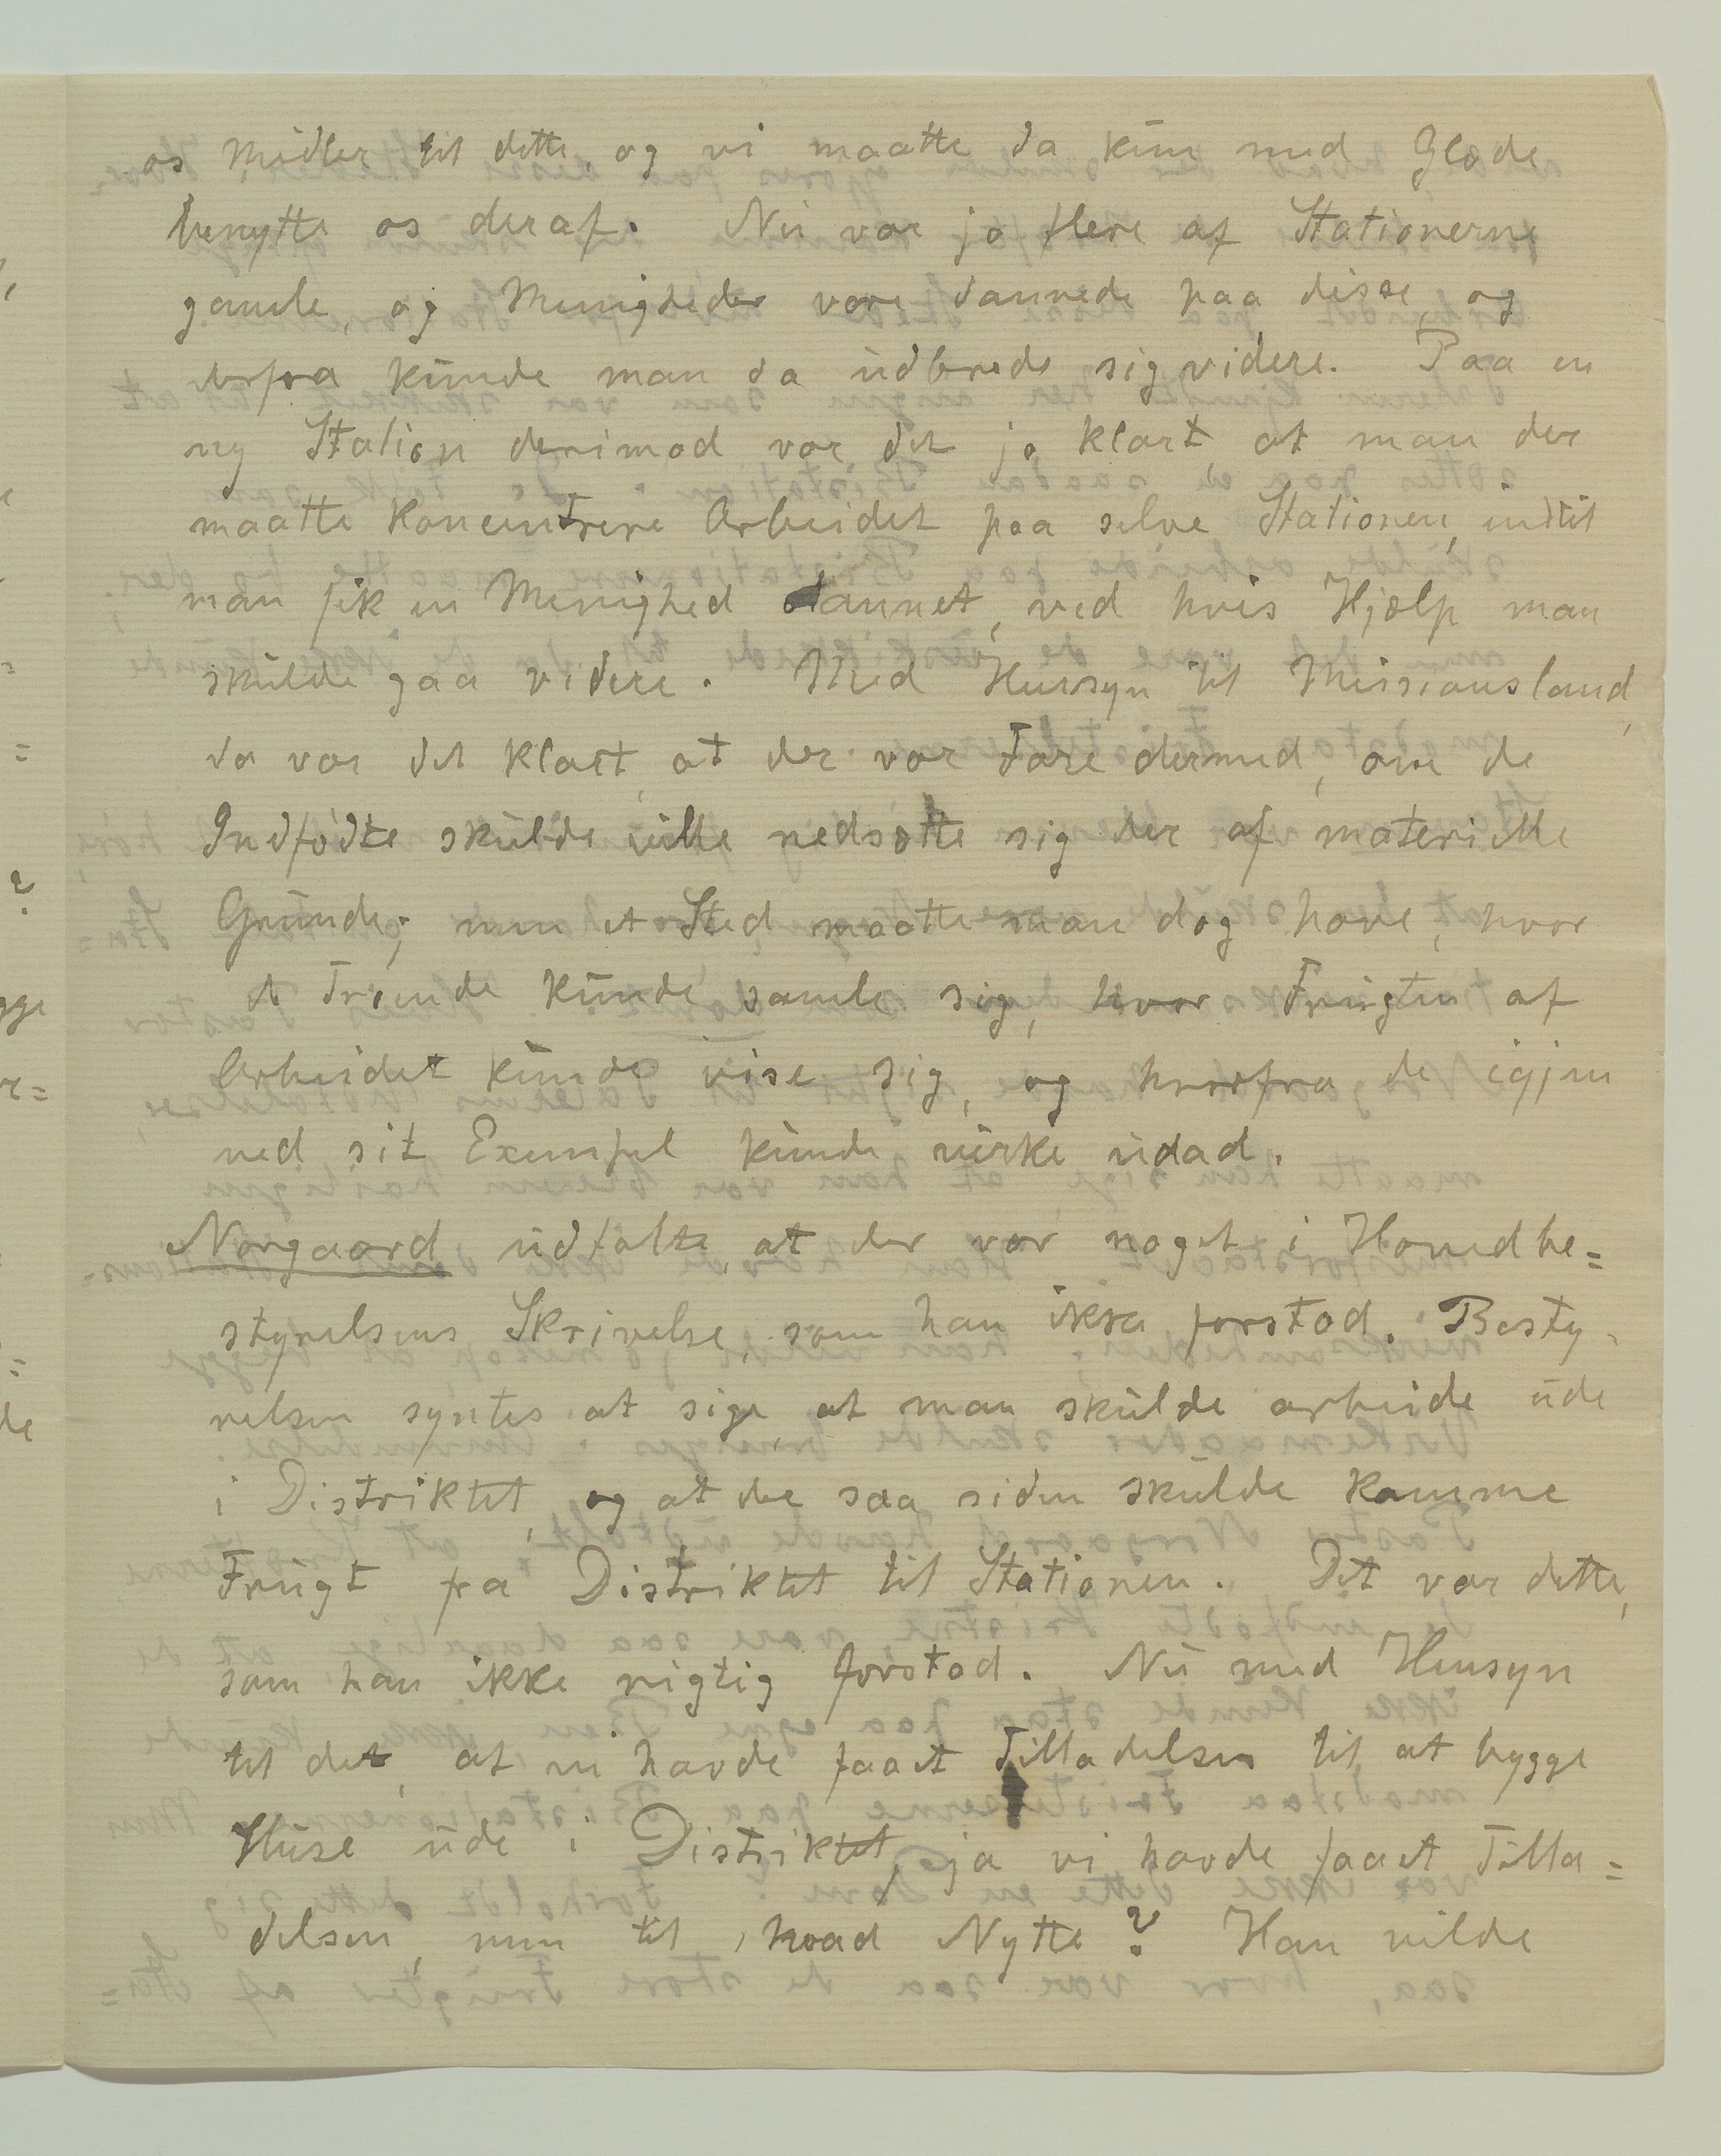 os Midler til dette, og vi maatte da kun med Glæde
benytte os deraf. Nu var jo flere af Stationerne
gamle, og Menigheder vare dannede paa disse, og
derfra kunde man da udbrede sig videre. Paa en
ny Station derimod var det jo klart, at man der
maatte koncentrere Arbeidet paa selve Stationen, indtil
man fik en Menighed dannet, ved hvis Hjælp man
skulde gaa videre. Med Hensyn til Missionsland,
da var det klart, at der var Fare dermed, om de
Indfødte skulde ville nedsætte sig der af materielle
Grunde; men et Sted maatte man dog have, hvor
de Troende kunde samle sig, hvor Frugten af
Arbeidet kunde vise sig, og hvorfra de igjen
ved sit Exempel kunde virke udad.
Norgaard udtalte, at der var noget i Hovedbe=
styrelsens Skrivelse, som han ikke forstod. Besty-
relsen syntes at sige, at man skulde arbeide ude
i Distriktet, og at der saa siden skulde komme
Frugt fra Distriktet til Stationen. Det var dette,
som han ikke rigtig forstod. Nu med Hensyn
til det, at vi havde faaet Tilladelsen til at bygge
Huse ude i Distriktet, ja vi havde faaet Tilla=
delsen, men til hvad Nytte? Han vilde